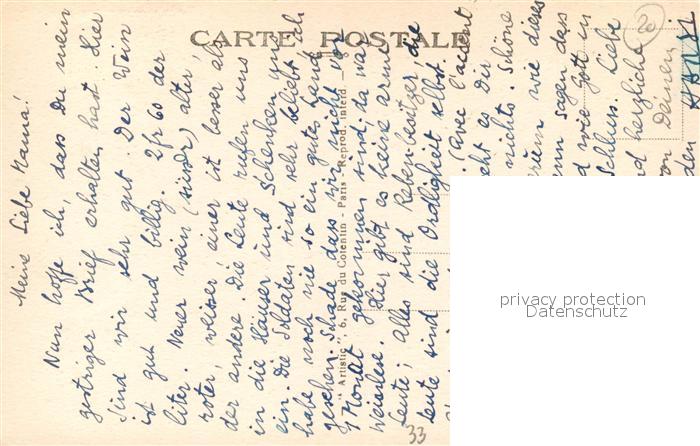 CARTE POSTALE
20
Meine Liebe Mama!
Nun hoffe ich, dass Du mein
gestriger Brief erhalten hast. Hier
sind wir sehr gut. Der Wein
ist gut und billig. 2 fr 60 der
liter. Neuer wein (süsser) alter,
roter, weisser einer ist besser als
der andere. Die Leute rufen uns
in die Häuser und Schenken uns
ein. Die Soldaten sind sehr beliebt ich
habe noch nie so ein gutes Land
gesehen. Schade dass wir nicht vor
1 Monat gekommen sind. da war
Weinlese. Hier gibt es keine arme
Leute; Alles sind Rebenbesitzer, die
Leute sind die Ordligkeit selbst.
(Avec l'accent
geht es Dir
nichts. Schöne
warum wie dieses
sagen, dass
wie Gott in
Schluss. Liebe
und herzliche
von Deinem
"Artistic", 6, Rue du Cotentin - Paris - Reprod. interd.
33
privacy protection
Datenschutz